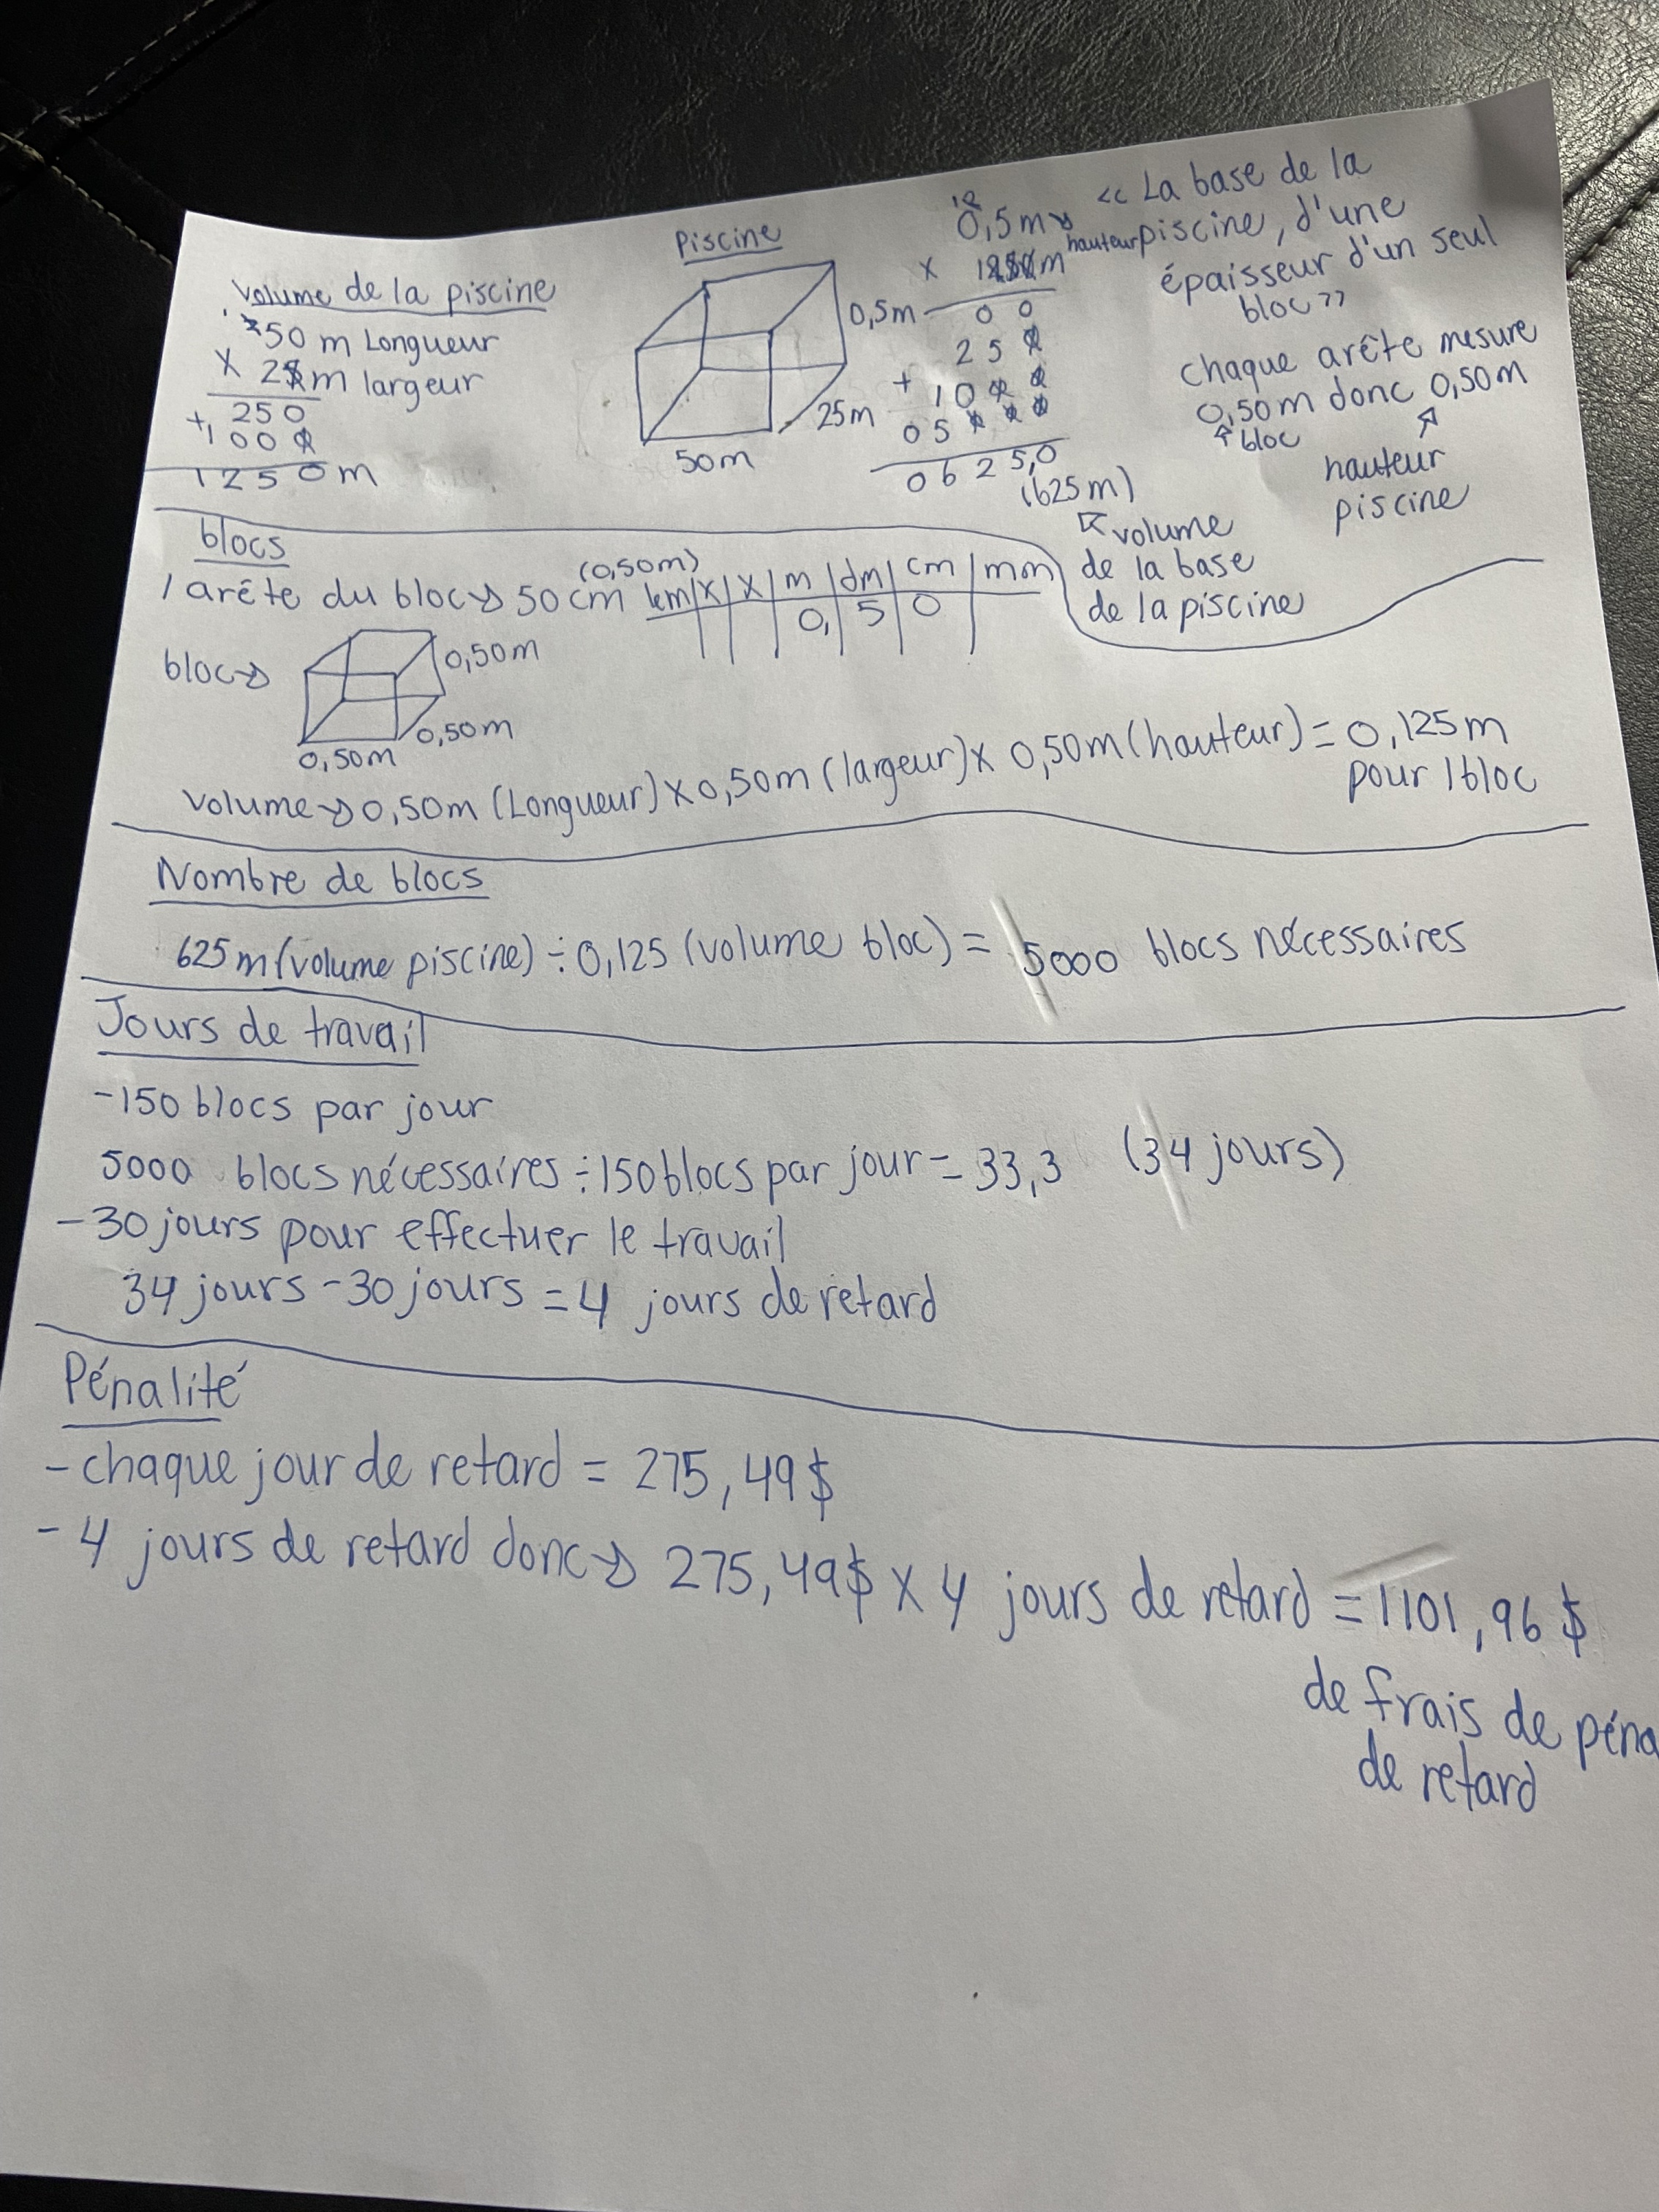 Volume de la piscine
50 m Longueur
x 25m largeur
250
+100
1250m
Piscine
0,5m
25m
50m
0,5m → hauteur
x 1250m
00
25
+ 10
05
0625,0
(625m)
↖ volume
de la base
de la piscine
<< La base de la
piscine, d'une
épaisseur d'un seul
bloc >>
chaque arête mesure
0,50m donc 0,50m
↑ bloc
↗
hauteur
piscine
blocs
1 arête du bloc → 50 cm (0,50m)
km | x | x | m | dm | cm | mm
0, | 5 | 0
bloc →
0,50m
0,50m
0,50m
Volume → 0,50m (Longueur) x 0,50m (largeur) x 0,50m (hauteur) = 0,125m
pour 1 bloc
Nombre de blocs
625m (volume piscine) ÷ 0,125 (volume bloc) = 5000 blocs nécessaires
Jours de travail
-150 blocs par jour
5000 blocs nécessaires ÷ 150 blocs par jour = 33,3 (34 jours)
-30 jours pour effectuer le travail
34 jours - 30 jours = 4 jours de retard
Pénalité
- chaque jour de retard = 275,49$
- 4 jours de retard donc → 275,49$ x 4 jours de retard = 1101,96 $
de frais de péna
de retard